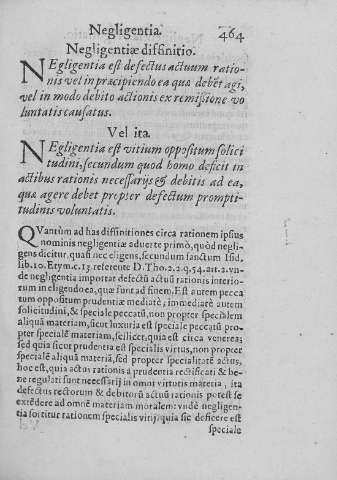 Negligentia. 464
Negligentiæ diffinitio.
NEgligentia est defectus actuum ratio-
nis vel in præcipiendo ea quæ debẽt agi,
vel in modo debito actionis ex remissione vo
luntatis causatus.
Vel ita.
NEgligentia est vitium oppositum solici
tudini, secundum quod homo deficit in
actibus rationis necessarijs & debitis ad ea,
quæ agere debet propter defectum prompti-
tudinis voluntatis.
QVantùm ad has diffinitiones circa rationem ipsius
nominis negligentiæ aduerte primò, quòd negli-
gens dicitur, quasi nec eligens, secundum sanctum Isid.
lib. 10. Etym. c. 13. referente D. Tho. 2. 2. q. 54. art. 2. vn-
de negligentia importat defectũ actuũ rationis interio-
rum in eligendo ea, quæ sunt ad finem. Est autem pecca
tum oppositum prudentiæ mediatè; immediatè autem
solicitudini, & speciale peccatũ, non propter specialem
aliquã materiam, sicut luxuria est speciale peccatũ pro-
pter specialẽ materiam, scilicet, quia est circa venerea;
sed quia sicut prudentia est specialis virtus, non propter
specialẽ aliquã materiã, sed propter specialitatẽ actus,
hoc est, quia actus rationis à prudentia rectificati & be-
ne regulati sunt necessarij in omni virtutis materia, ita
defectus rectorum & debitorũ actuũ rationis potest se
extẽdere ad omnẽ materiam moralem: vndè negligen-
tia sortitur rationem specialis vitij, quia sic deficere est
speciale